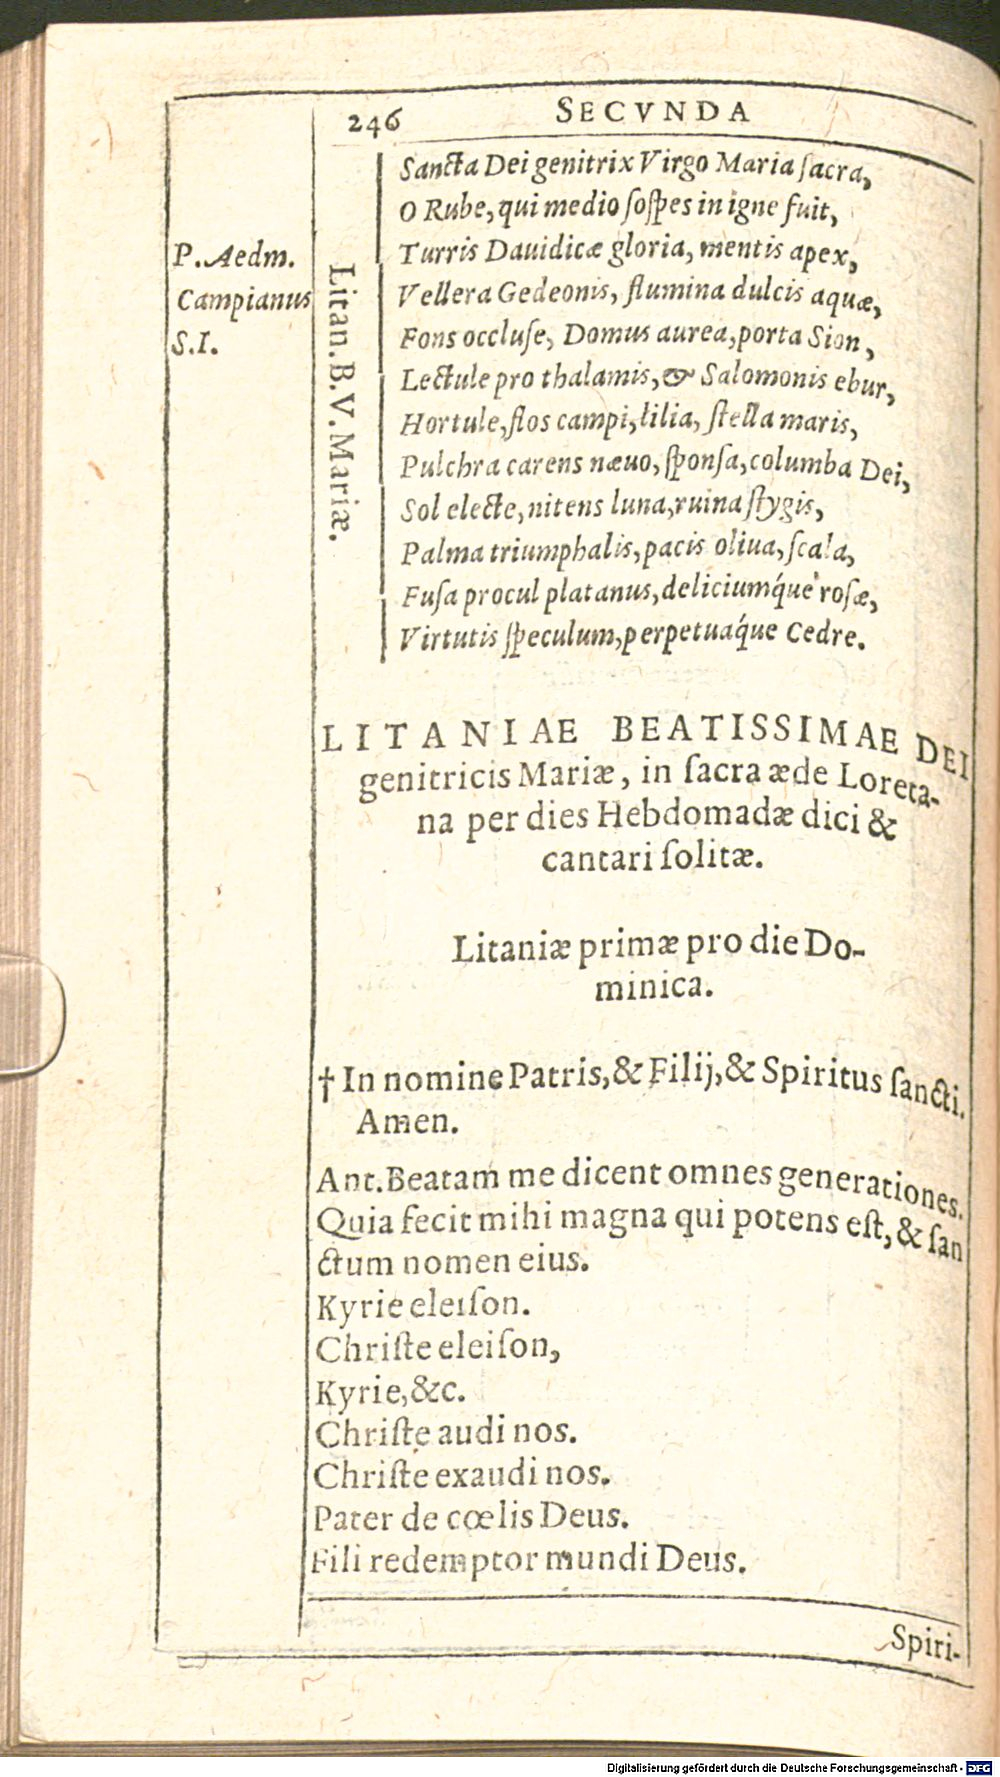 246 SECVNDA
P. Aedm.
Campianus
S.I.
Litan. B. V. Mariæ.
Sancta Dei genitrix Virgo Maria ſacra,
O Rube, qui medio ſoſpes in igne fuit,
Turris Dauidicæ gloria, mentis apex,
Vellera Gedeonis, flumina dulcis aquæ,
Fons occluſe, Domus aurea, porta Sion,
Lectule pro thalamis, & Salomonis ebur,
Hortule, flos campi, lilia, ſtella maris,
Pulchra carens næuo, ſponſa, columba Dei,
Sol electe, nitens luna, ruina ſtygis,
Palma triumphalis, pacis oliua, ſcala,
Fuſa procul platanus, deliciumq́ue roſæ,
Virtutis ſpeculum, perpetuaq́ue Cedre.
LITANIAE BEATISSIMAE DEI
genitricis Mariæ, in ſacra æde Loreta-
na per dies Hebdomadæ dici &
cantari ſolitæ.
Litaniæ primæ pro die Do-
minica.
† In nomine Patris, & Filij, & Spiritus ſancti.
Amen.
Ant. Beatam me dicent omnes generationes.
Quia fecit mihi magna qui potens eſt, & ſan
ctum nomen eius.
Kyrie eleiſon.
Chriſte eleiſon,
Kyrie, &c.
Chriſte audi nos.
Chriſte exaudi nos.
Pater de cœlis Deus.
Fili redemptor mundi Deus.
Spiri-
Digitalisierung gefördert durch die Deutsche Forschungsgemeinschaft - DFG